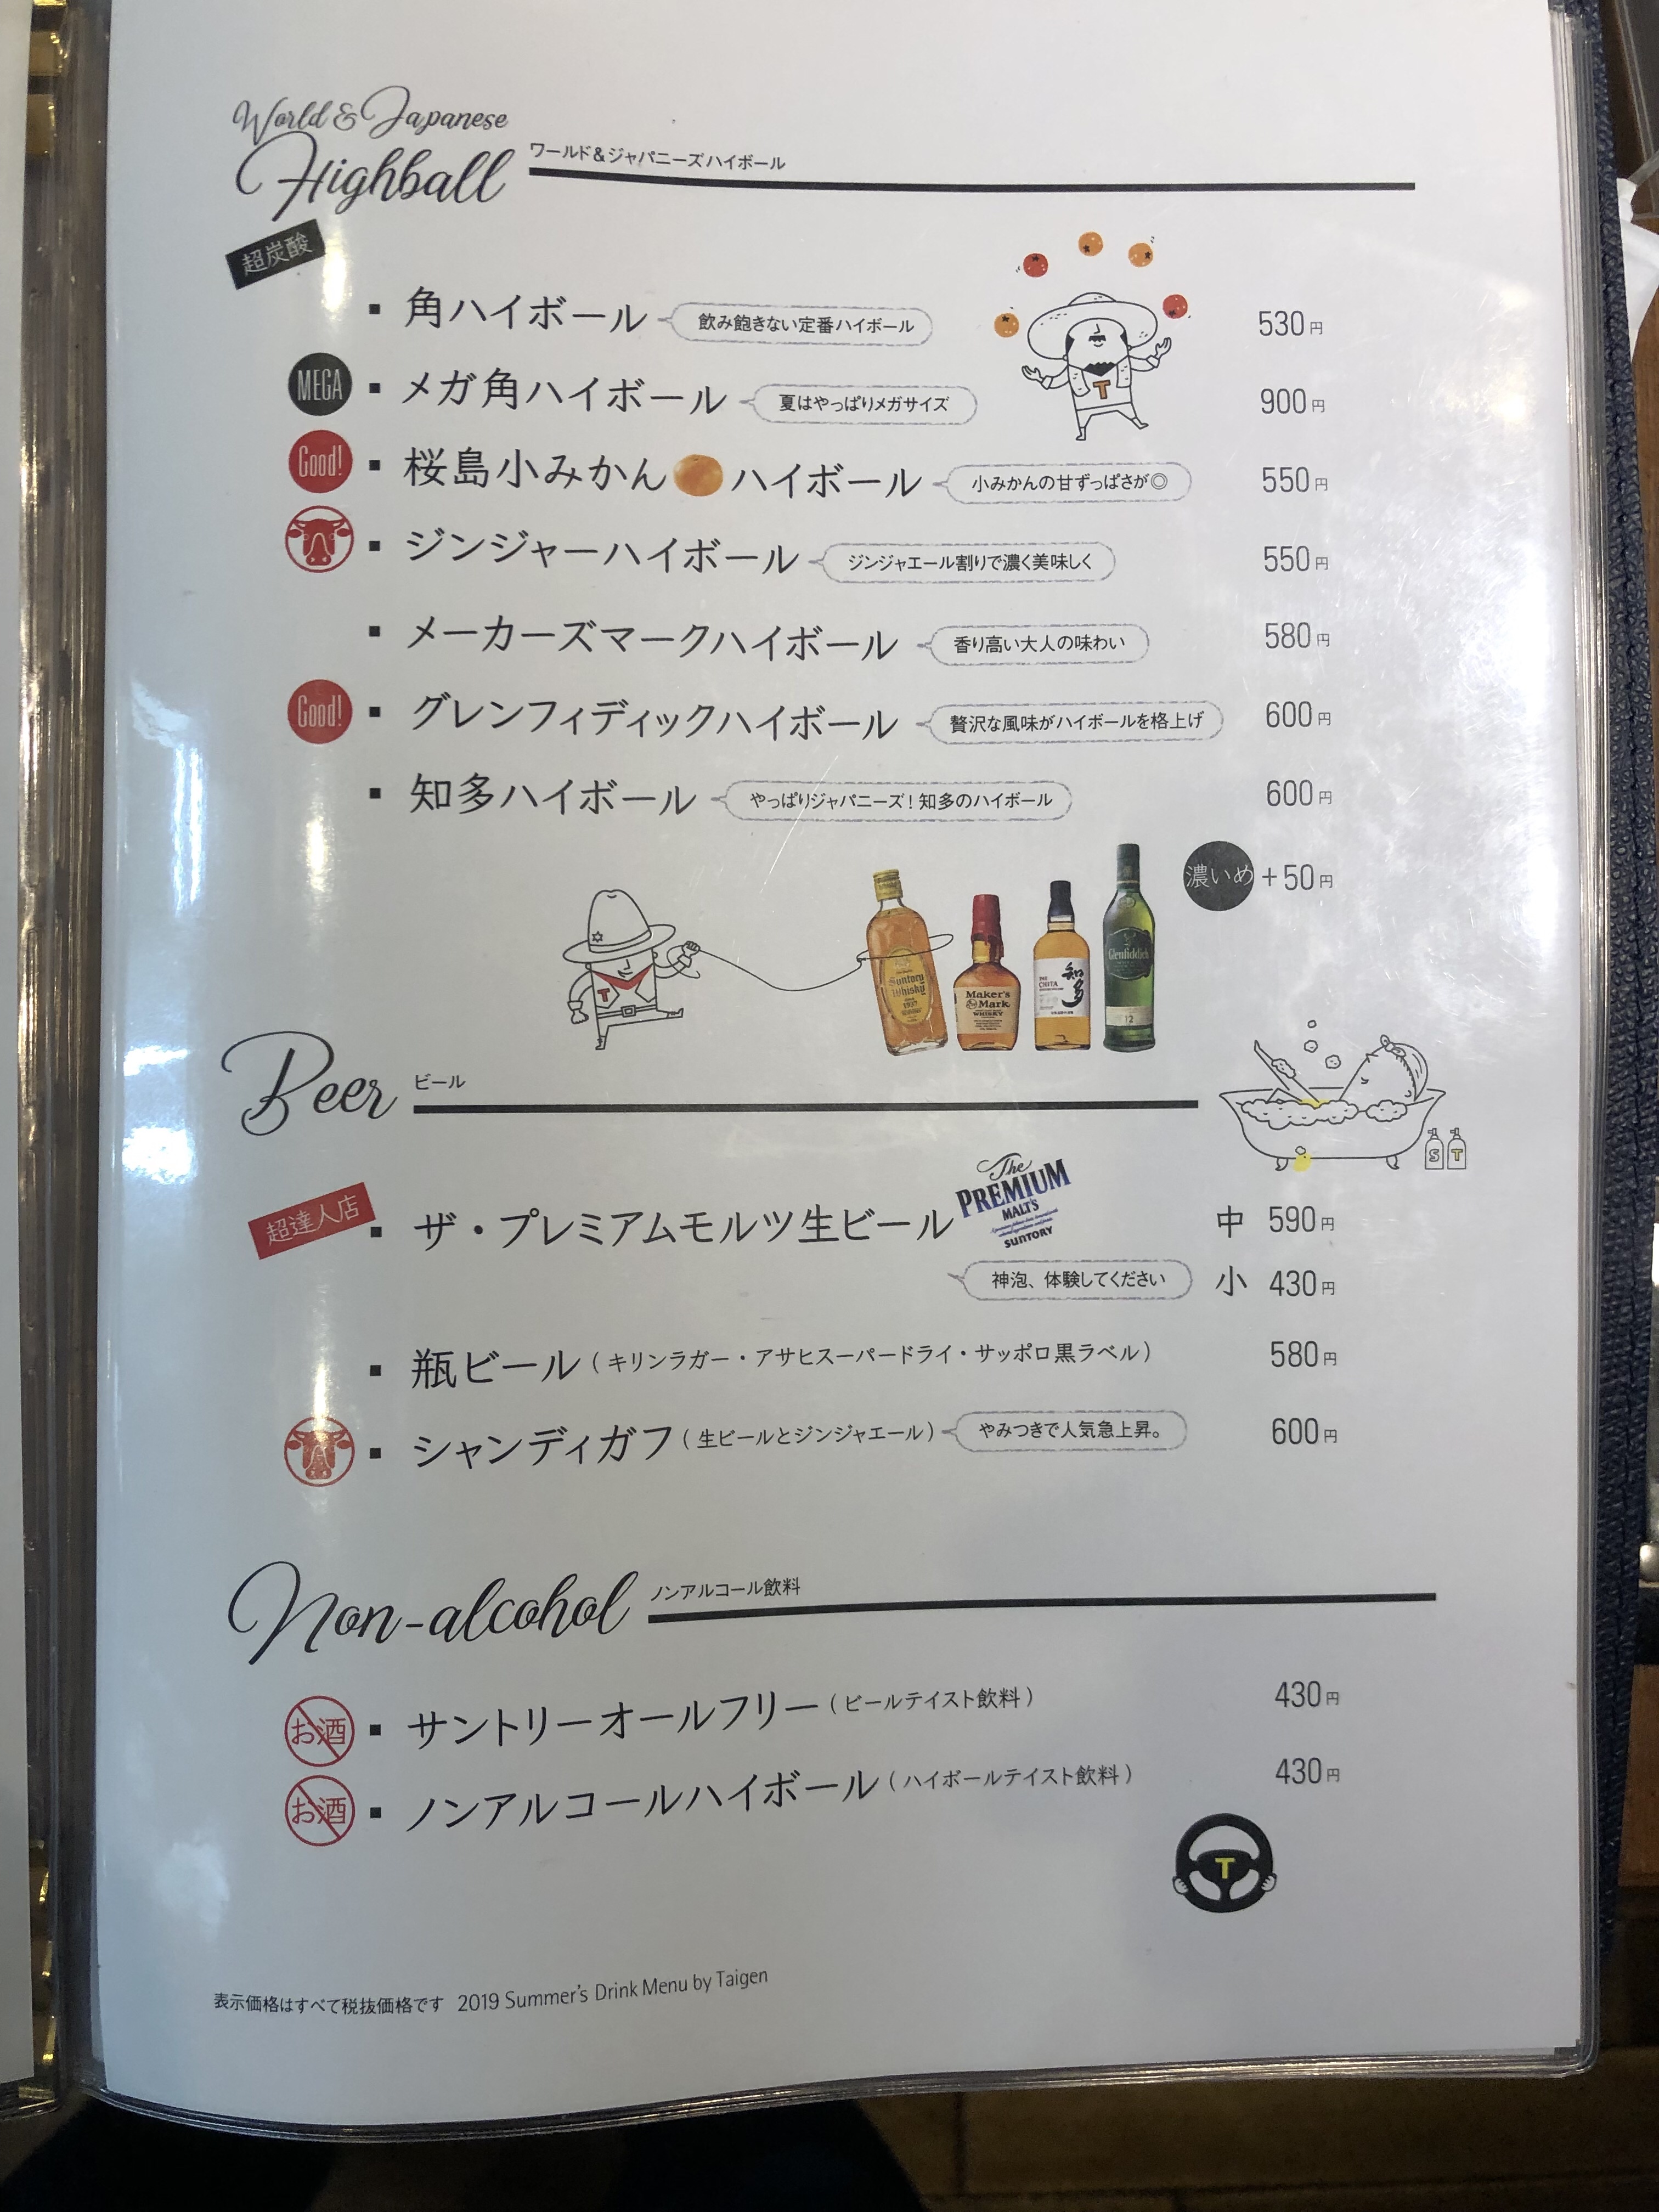 World & Japanese
Highball ワールド＆ジャパニーズハイボール
超炭酸
▪ 角ハイボール 飲み飽きない定番ハイボール 530円
MEGA ▪ メガ角ハイボール 夏はやっぱりメガサイズ 900円
Good! ▪ 桜島小みかんハイボール 小みかんの甘ずっぱさが◎ 550円
▪ ジンジャーハイボール ジンジャエール割りで濃く美味しく 550円
▪ メーカーズマークハイボール 香り高い大人の味わい 580円
Good! ▪ グレンフィディックハイボール 贅沢な風味がハイボールを格上げ 600円
▪ 知多ハイボール やっぱりジャパニーズ！知多のハイボール 600円
濃いめ +50円
T
T
Suntory
Whisky
1937
Maker's
Mark
WHISKY
THE
CHITA
知多
Glenfiddich
12
Beer ビール
S T
超達人店
▪ ザ・プレミアムモルツ生ビール 中 590円
The
PREMIUM
MALT'S
SUNTORY
神泡、体験してください 小 430円
▪ 瓶ビール（キリンラガー・アサヒスーパードライ・サッポロ黒ラベル） 580円
▪ シャンディガフ（生ビールとジンジャエール） やみつきで人気急上昇。 600円
Non-alcohol ノンアルコール飲料
お酒 ▪ サントリーオールフリー（ビールテイスト飲料） 430円
お酒 ▪ ノンアルコールハイボール（ハイボールテイスト飲料） 430円
T
表示価格はすべて税抜価格です 2019 Summer's Drink Menu by Taigen